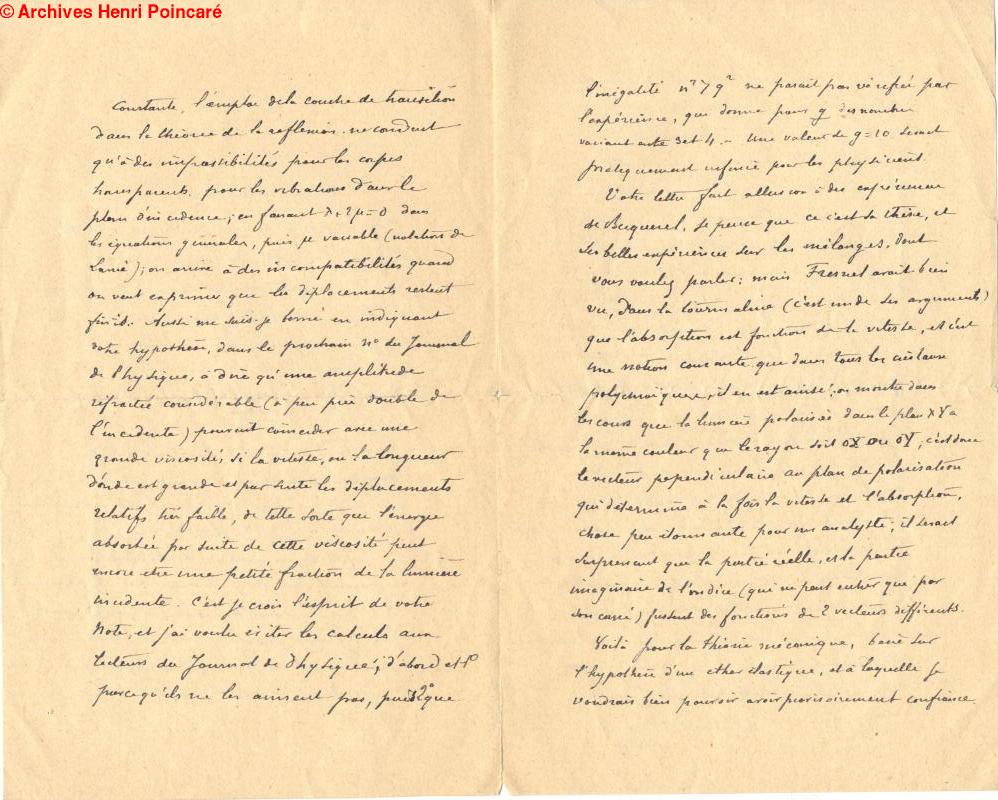 © Archives Henri Poincaré
constante l'emploi de la couche de transition
dans la théorie de la réflexion ne conduit
qu'à des impossibilités pour les corps
transparents. pour les vibrations dans le
plan d'incidence ; en faisant λ+2μ=0 dans
les équations générales, puis μ variable (notations de
Lamé) ; on arrive à des incompatibilités quand
on veut exprimer que les déplacements restent
finis. Aussi me suis-je borné en indiquant
votre hypothèse, dans le prochain n° du Journal
de Physique, à dire qu'une amplitude
réfractée considérable (à peu près double de
l'incidente) pouvait coïncider avec une
grande viscosité, si la vitesse, ou la longueur
d'onde est grande et par suite les déplacements
relatifs très faible, de telle sorte que l'énergie
absorbée par suite de cette viscosité peut
encore être une petite fraction de la lumière
incidente. C'est je crois l'esprit de votre
Note, et j'ai voulu éviter les calculs aux
lecteurs du Journal de Physique ; d'abord 1°
parce qu'ils ne les aiment pas, puis 2° que
l'inégalité n² > g² ne paraît pas vérifiée par
l'expérience, qui donne pour g des nombres
variant entre 3 et 4. – Une valeur de g=10 serait
pratiquement infinie pour les physiciens.
Votre lettre fait allusion à des expériences
de Becquerel, je pense que ce c'est sa thèse, et
ses belles expériences sur les mélanges, dont
vous voulez parler ; mais Fresnel avait bien
vu, dans la tourmaline (c'est un de ses arguments)
que l'absorption est fonction de la vitesse, et c'est
une notion courante que dans tous les cristaux
polychroïques, il en est ainsi ; on montre dans
les cours que la lumière polarisée dans le plan XY a
la même couleur que le rayon soit OX ou OY, c'est donc
le vecteur perpendiculaire au plan de polarisation
qui détermine à la fois la vitesse et l'absorption,
chose peu étonnante pour un analyste ; il serait
surprenant que la partie réelle, et la partie
imaginaire de l'indice (qui ne peut entrer que par
son carré) fussent des fonctions de 2 vecteurs différents.
Voilà pour la théorie mécanique, basée sur
l'hypothèse d'un ether élastique, et à laquelle je
voudrais bien pouvoir avoir provisoirement confiance